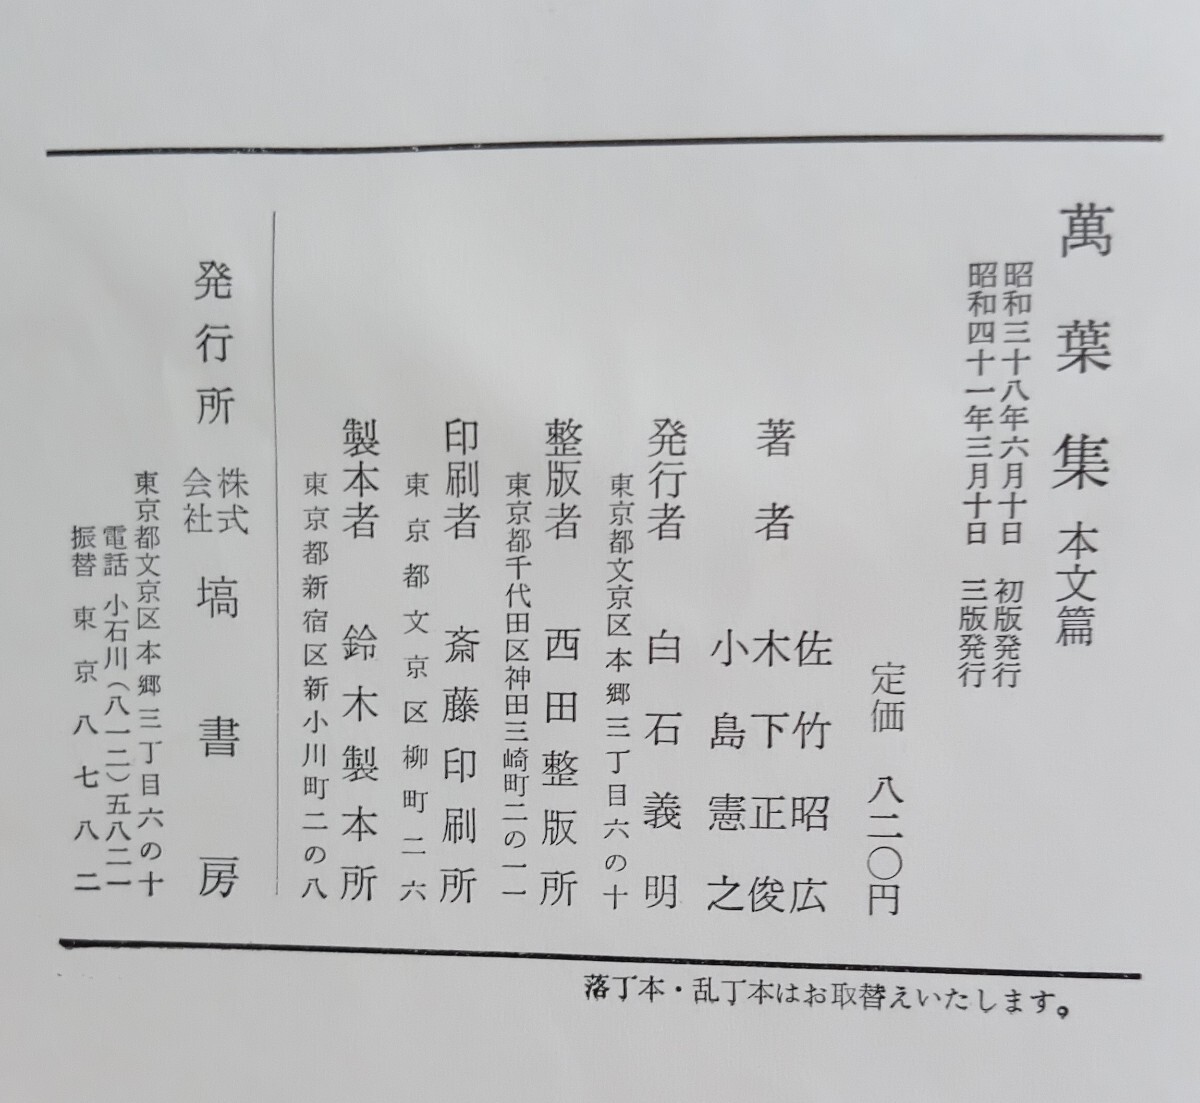 萬葉集 本文篇
昭和三十八年六月十日 初版発行
昭和四十一年三月十日 三版発行
定価 八二〇円
著者 佐竹昭広
木下正俊
小島憲之
発行者 白石義明
東京都文京区本郷三丁目六の十
整版者 西田整版所
東京都千代田区神田三崎町二の一一
印刷者 斎藤印刷所
東京都文京区柳町二六
製本者 鈴木製本所
東京都新宿区新小川町二の八
発行所 株式会社 塙書房
東京都文京区本郷三丁目六の十
電話 小石川(八一二)五八二一
振替 東京八七八二
落丁本・乱丁本はお取替えいたします。